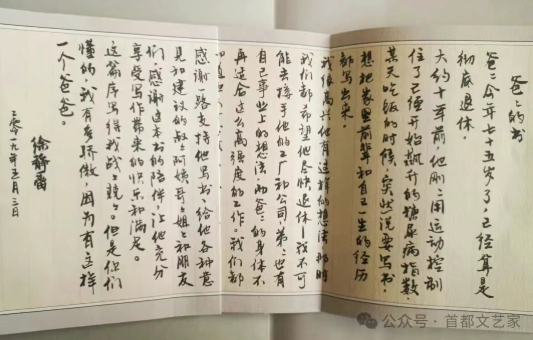 爸々的书
爸々今年七十五岁了,已经算是
彻底退休。
大约十年前他刚々用运动控制
住了已经开始飙升的糖尿病指数,
某天吃饭的时候,突然说要写书,
想把家里前辈和自己一生的经历
都写出来。
我很高兴他有这样的想法,那时
我们都希望他尽快退休—我不可
能去接手他的工厂和公司,弟々也有
自己事业上的想法,而爸々的身体不
再适合这么高强度的工作。我们都
感谢一路支持他写书,给他各种意
见和建议的叔々阿姨哥々姐々和朋友
们,感谢这本书的陪伴,让他充分
享受写作带来的快乐和满足。
这篇序写得我战々兢々。但是你们
懂的,我有多骄傲,因为有这样
一个爸爸。
徐静蕾
二零一九年五月三日
公众号·首都文艺家